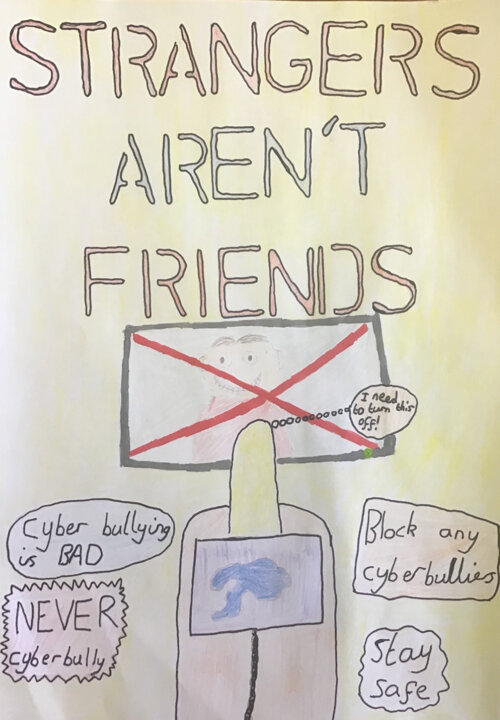 STRANGERS
AREN'T
FRIENDS
I need
to turn this
off!
Cyber bullying
is BAD
Block any
cyberbullies
NEVER
cyberbully
Stay
Safe